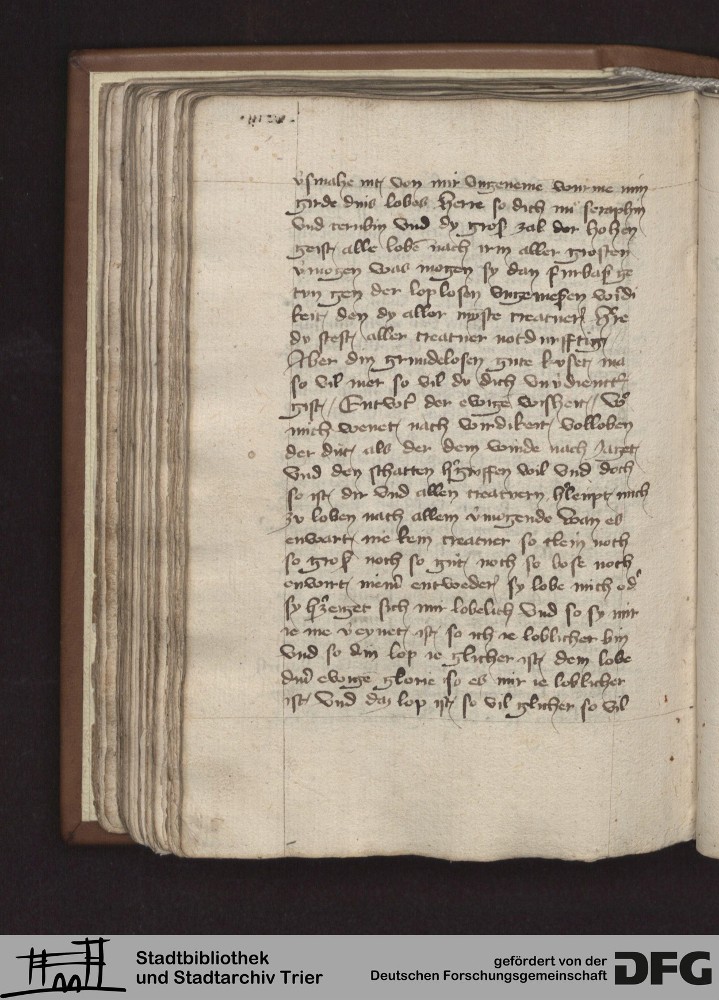 v̉smahe nit von mir vngeneme wurme min
girde dins lobes Herre so dich nu seraphin
vnd cerubin vnd dy groß zal der hohen
geist alle lobē nach irm aller grosten
v̉mogen was mogen sy dan furbaß ge
tun gen der loplosen vngemeßen wirdi
keit den dy aller mynste creatuer Hr̉e
dy stest aller creatuer notdurfftig
Aber din grundelosen gute
so vil mer so vil dv dich
gist / Entwort̉ der ewige wisheit / W̉
mich wenet nach wirdikeit volloben
der dut als der dem winde nach Jaget
vnd den schatten b̉griffen wil vnd doch
so ist dir vnd allen creatuern mich
zv loben nach allem v̉mogende wan es
enwart nie kein creatuer so clein noch
so groß noch so gut noch so bose noch
enwirt entweder sy lobe mich od̉
sy b̉zeuget sich mir lobelich vnd so sy mir
ie me v̉eynet ist so ich ie loblicher bin
vnd so din lop ie glicher ist dem lobe
der ewige glorie so es mir ie loblicher
ist vnd daz lop ist so vil glicher so vil
Stadtbibliothek
und Stadtarchiv Trier
gefördert von der
Deutschen Forschungsgemeinschaft
DFG